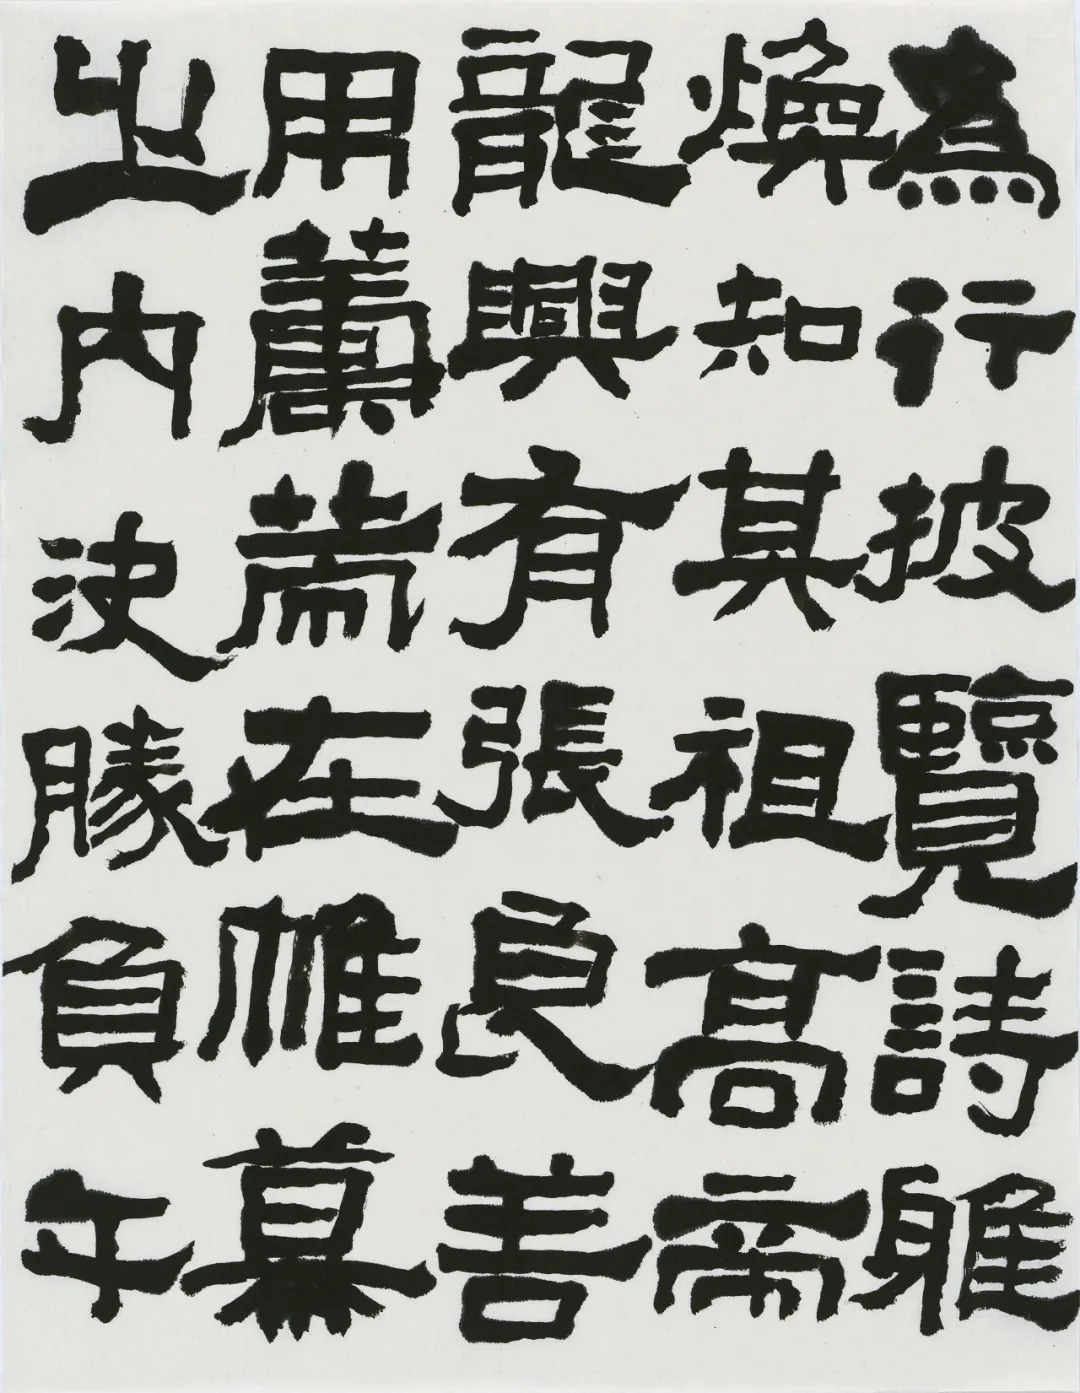 為行披覽詩雅
煥知其祖高帝
龍興有張良善
用籌策在帷幕
之內決勝負千